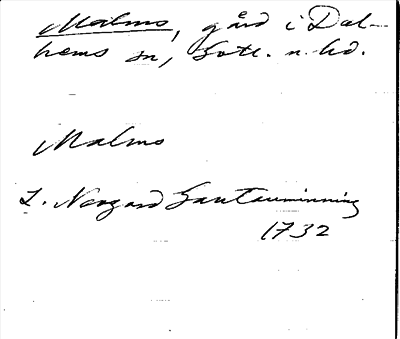 Malms, gård i Dal-
hems sn, Gotl. n. hd.
Malms
L. Norgard Gautauminning
1732